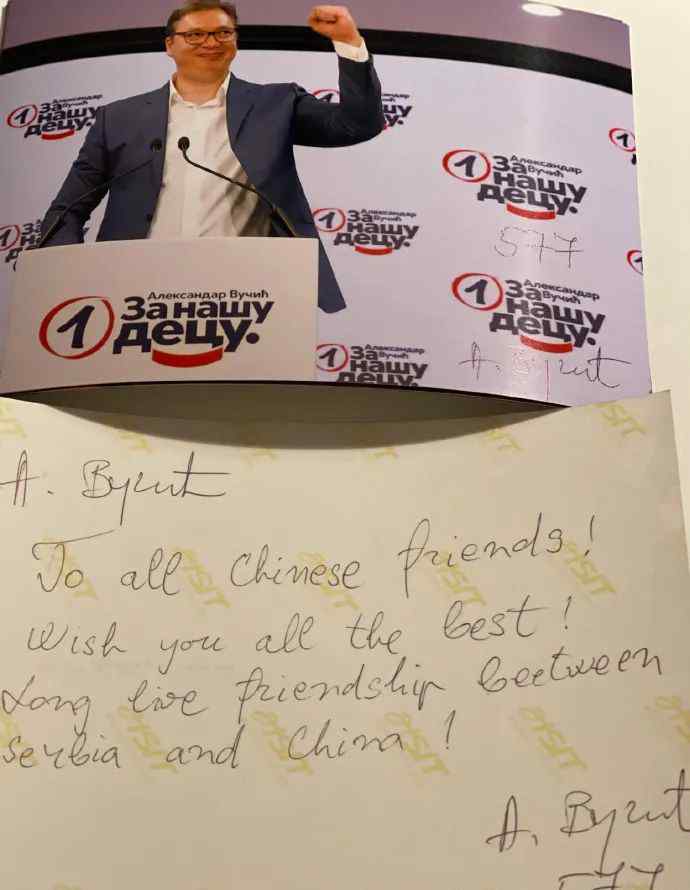 1 Александар Вучић
За нашу децу.
1 Александар Вучић
За нашу децу.
577
1 Александар Вучић
За нашу децу.
1 Александар Вучић
За нашу децу.
1 Александар Вучић
За нашу децу.
А. Вучић
1 Александар Вучић
За нашу децу.
А. Вучић
To all Chinese friends!
Wish you all the best!
Long live friendship beetween
Serbia and China!
А. Вучић
577